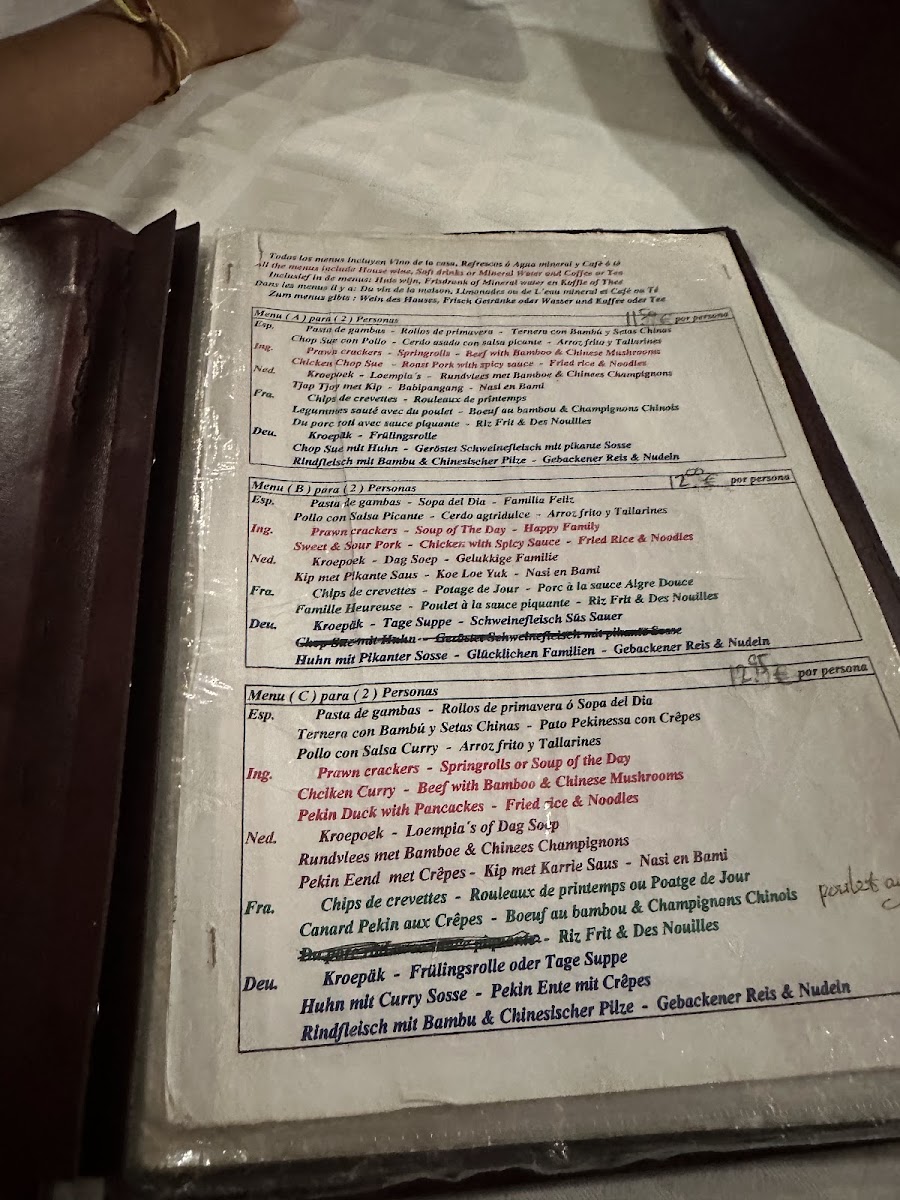 Todos los menus incluyen Vino de la casa, Refrescos ó Agua mineral y Café ó té
All the menus include House wine, Soft drinks or Mineral Water and Coffee or Tea
Inclusief in de menus: Huis wijn, Frisdrank of Mineral water en Koffie of Thee
Dans les menus il y a: Du vin de la maison, Limonades ou de L'eau mineral et Café ou Té
Zum menus gibts : Wein des Hauses, Frisch Getränke oder Wasser und Koffee oder Tee
Menu ( A ) para ( 2 ) Personas 11.50 € por persona
Esp. Pasta de gambas - Rollos de primavera - Ternera con Bambú y Setas Chinas
Chop Sue con Pollo - Cerdo asado con salsa picante - Arroz frito y Tallarines
Ing. Prawn crackers - Springrolls - Beef with Bamboo & Chinese Mushrooms
Chicken Chop Sue - Roast Pork with spicy sauce - Fried rice & Noodles
Ned. Kroepoek - Loempia's - Rundvlees met Bamboe & Chinees Champignons
Tjap Tjoy met Kip - Babipangang - Nasi en Bami
Fra. Chips de crevettes - Rouleaux de printemps
Legummes sauté avec du poulet - Boeuf au bambou & Champignons Chinois
Du porc roti avec sauce piquante - Riz Frit & Des Nouilles
Deu. Kroepäk - Frülingsrolle
Chop Sue mit Huhn - Geröstet Schweinefleisch mit pikante Sosse
Rindfleisch mit Bambu & Chinesischer Pilze - Gebackener Reis & Nudeln
Menu ( B ) para ( 2 ) Personas 12.00 € por persona
Esp. Pasta de gambas - Sopa del Dia - Familia Feliz
Pollo con Salsa Picante - Cerdo agtridulce - Arroz frito y Tallarines
Ing. Prawn crackers - Soup of The Day - Happy Family
Sweet & Sour Pork - Chicken with Spicy Sauce - Fried Rice & Noodles
Ned. Kroepoek - Dag Soep - Gelukkige Familie
Kip met Pikante Saus - Koe Loe Yuk - Nasi en Bami
Fra. Chips de crevettes - Potage de Jour - Porc à la sauce Aigre Douce
Famille Heureuse - Poulet à la sauce piquante - Riz Frit & Des Nouilles
Deu. Kroepäk - Tage Suppe - Schweinefleisch Süs Sauer
Chop Sue mit Huhn - Geröstet Schweinefleisch mit pikante Sosse
Huhn mit Pikanter Sosse - Glücklichen Familien - Gebackener Reis & Nudeln
Menu ( C ) para ( 2 ) Personas 12.95 € por persona
Esp. Pasta de gambas - Rollos de primavera ó Sopa del Dia
Ternera con Bambú y Setas Chinas - Pato Pekinessa con Crêpes
Pollo con Salsa Curry - Arroz frito y Tallarines
Ing. Prawn crackers - Springrolls or Soup of the Day
Chciken Curry - Beef with Bamboo & Chinese Mushrooms
Pekin Duck with Pancackes - Fried rice & Noodles
Ned. Kroepoek - Loempia's of Dag Soep
Rundvlees met Bamboe & Chinees Champignons
Pekin Eend met Crêpes - Kip met Karrie Saus - Nasi en Bami
Fra. Chips de crevettes - Rouleaux de printemps ou Poatge de Jour
Canard Pekin aux Crêpes - Boeuf au bambou & Champignons Chinois poulet
- Riz Frit & Des Nouilles
Deu. Kroepäk - Frülingsrolle oder Tage Suppe
Huhn mit Curry Sosse - Pekin Ente mit Crêpes
Rindfleisch mit Bambu & Chinesischer Pilze - Gebackener Reis & Nudeln